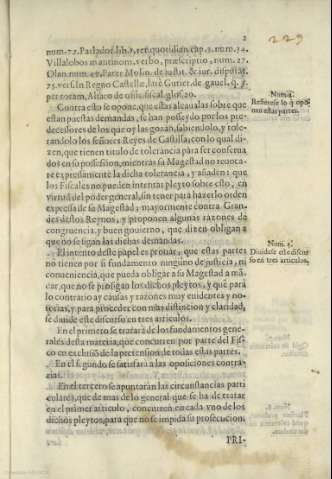 2
229
num.72. Parlador. lib. 2. rer. quotidian. cap. 3. num. 34.
Villalobos in antinom. verbo, præscriptio, num. 27.
Olan. num. 47. Pater Molin. de iustit. & iur. disp. 
75. vers. In Regno Castellæ, latè Gutier. de gauel. q. 
per totam, Alfaro de offic. fiscal. glos. 20.
Contra esto se opone, que estas alcaualas sobre que
estan puestas demandas, se han posseydo por los pre-
decessores de los que oy las gozan, sabiendolo, y tole-
randolo los señores Reyes de Castilla; con lo qual di-
zen, que tienen titulo de tolerancia para ser conserua-
dos en su possession, mientras su Magestad no reuoca-
re expressamente la dicha tolerancia, y añaden: que
los Fiscales no pueden intentar pleyto sobre esto, en
virtud del poder general, sin tener para hazerlo orden
expressa de su Magestad; mayormente contra Gran-
des destos Reynos, y proponen algunas razones de
congruencia, y buen gouierno, que dizen obligan a
que no se sigan las dichas demandas.
El intento deste papel es prouar, que estas partes
no tienen por si fundamento ninguno de justicia, ni
conueniencia, que pueda obligar a su Magestad a mã-
dar, que no se prosigan los dichos pleytos, y que para
lo contrario ay causas y razones muy euidentes y no-
torias, y para proceder con mas distincion y claridad,
se diuide este discurso en tres articulos.
En el primero se tratarà de los fundamentos gene-
rales desta materia, que concurren por parte del Fis-
co en exclusiõ de la pretension de todas estas partes.
En el segundo se satisfarà a las oposiciones contra-
rias.
En el tercero se apuntaràn las circunstancias parti
culares, que de mas de lo general que se ha de tratar
en el primer articulo, concurren en cada vno de los
dichos pleytos, para que no se impida su prosecucion.
PRI-
Num. 
Refierese lo q opo-
nen estas partes.
Num. 
Diuidese este discur
so en tres articulos.